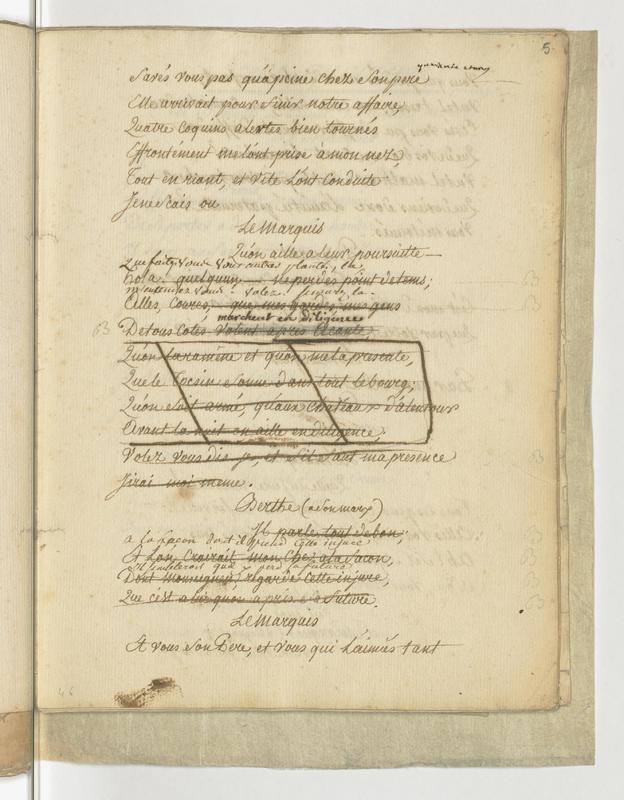 5
Savés vous pas qu'a peine chez Son pere
Elle arrivait pour finir notre affaire,
Quatre coquins alertes bien tournés
Effrontément me l'ont prise à mon nez,
Tout en riant, et vite L'ont conduite
Je ne scais ou
Le Marquis
Qu'on aille a leur poursuitte
Que faites vous vous autres plantés la
hola. quelqu'un ne perdés point de tems;
m'entendez vous? volez
Celles, Coures, que mes gardes mes gens
marchent en diligence
63 De tous cotés volent après Acante,
Qu'on la ramène et qu'on me la presente,
Que le Tocsin Sonne dans tout le bourg;
Qu'on Soit armé, qu'aux chateaux d'alentour
Avant la nuit on aille en diligence;
Volez vous dis je, et S'il faut ma presence
J'irai moi meme.
Berthe (a son mary)
Il parle tout de bon;
a la façon dont il prend cette injure
Et L'on Croirait mon Cher a la facon,
Il semblerait qu'il perd sa future.
Dont Monseigneur regarde cette injure,
Que c'est a lui qu'on a pris la future.
Le Marquis
Et vous Son Pere, et vous qui L'aimés tant
46